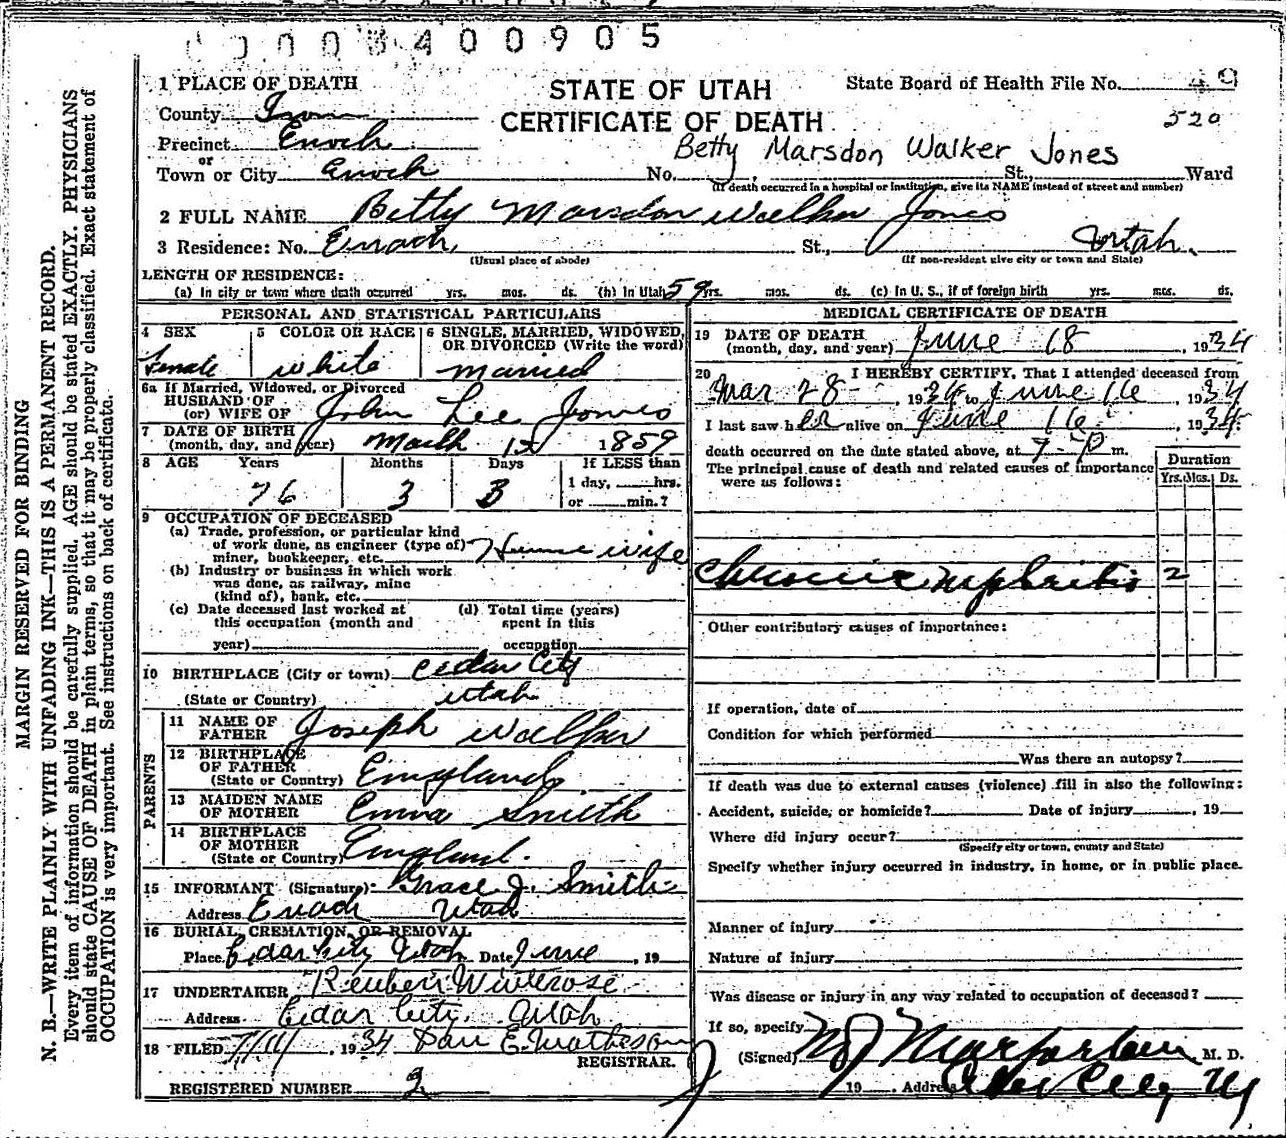 0003400905
1 PLACE OF DEATH
STATE OF UTAH
State Board of Health File No. 49
County Iron
CERTIFICATE OF DEATH
520
Precinct Enoch
Betty Marsdon Walker Jones
or
Town or City Enoch No. St., Ward
(If death occurred in a hospital or institution, give its NAME instead of street and number)
2 FULL NAME Betty Marsdon Walker Jones
3 Residence: No. Enoch St., Utah.
(Usual place of abode) (If non-resident give city or town and State)
LENGTH OF RESIDENCE:
(a) In city or town where death occurred yrs. mos. ds. (b) In Utah 59 yrs. mos. ds. (c) In U. S., if of foreign birth yrs. mos. ds.
PERSONAL AND STATISTICAL PARTICULARS
4 SEX 5 COLOR OR RACE 6 SINGLE, MARRIED, WIDOWED,
OR DIVORCED (Write the word)
Female white married
6a If Married, Widowed, or Divorced
HUSBAND OF
(or) WIFE OF John Lee Jones
7 DATE OF BIRTH
(month, day, and year) March 1859
8 AGE Years Months Days If LESS than
1 day, hrs.
76 3 3 or min.?
9 OCCUPATION OF DECEASED
(a) Trade, profession, or particular kind
of work done, as engineer (type of)
miner, bookkeeper, etc. House wife
(b) Industry or business in which work
was done, as railway, mine
(kind of), bank, etc.
(c) Date deceased last worked at (d) Total time (years)
this occupation (month and spent in this
year) occupation
10 BIRTHPLACE (City or town) Cedar City
(State or Country) Utah
PARENTS
11 NAME OF
FATHER Joseph Walker
12 BIRTHPLACE
OF FATHER
(State or Country) England
13 MAIDEN NAME
OF MOTHER Emma Smith
14 BIRTHPLACE
OF MOTHER
(State or Country) England.
15 INFORMANT (Signature): Grace J. Smith
Address Enoch Utah
16 BURIAL, CREMATION, OR REMOVAL
Place Cedar City Utah Date June , 19
17 UNDERTAKER Reuben Winterose
Address Cedar City, Utah
18 FILED 7/11 , 1934 Dan E. Matheson
REGISTRAR.
REGISTERED NUMBER 2
MEDICAL CERTIFICATE OF DEATH
19 DATE OF DEATH
(month, day, and year) June 18 , 1934
20 I HEREBY CERTIFY, That I attended deceased from
Mar 28 , 1934 to June 16 , 1934
I last saw her alive on June 16 , 1934
death occurred on the date stated above, at 7-P m.
The principal cause of death and related causes of importance
were as follows:
Duration
Yrs. Mos. Ds.
Chronic nephritis 2
Other contributory causes of importance:
If operation, date of
Condition for which performed
Was there an autopsy?
If death was due to external causes (violence) fill in also the following:
Accident, suicide, or homicide? Date of injury , 19
Where did injury occur?
(Specify city or town, county and State)
Specify whether injury occurred in industry, in home, or in public place.
Manner of injury
Nature of injury
Was disease or injury in any way related to occupation of deceased?
If so, specify
(Signed) Macfarlane M. D.
19 Address Cedar City, Ut
MARGIN RESERVED FOR BINDING
N. B.—WRITE PLAINLY WITH UNFADING INK—THIS IS A PERMANENT RECORD.
Every item of information should be carefully supplied. AGE should be stated EXACTLY. PHYSICIANS
should state CAUSE OF DEATH in plain terms, so that it may be properly classified. Exact statement of
OCCUPATION is very important. See instructions on back of certificate.